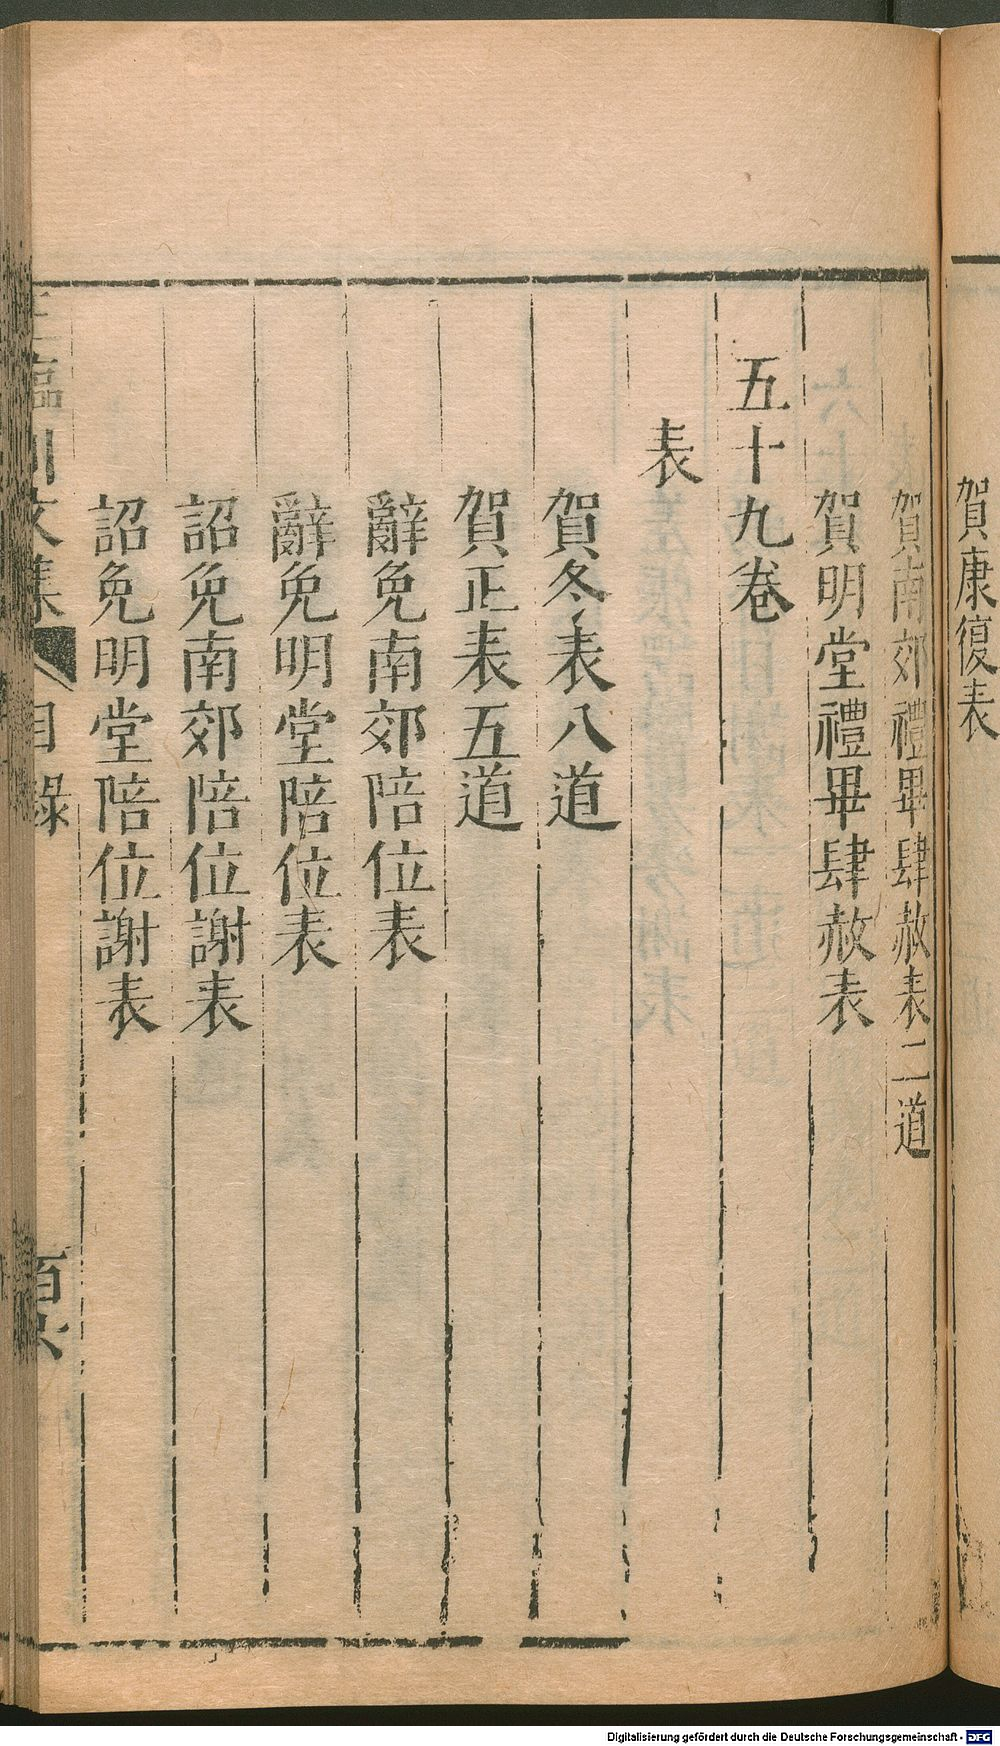 賀康復表
賀南郊禮畢肆赦表二道
賀明堂禮畢肆赦表
五十九卷
表
賀冬表八道
賀正表五道
辭免南郊陪位表
辭免明堂陪位表
詔免南郊陪位謝表
詔免明堂陪位謝表
臨川文集
目錄
Digitalisierung gefördert durch die Deutsche Forschungsgemeinschaft - DFG